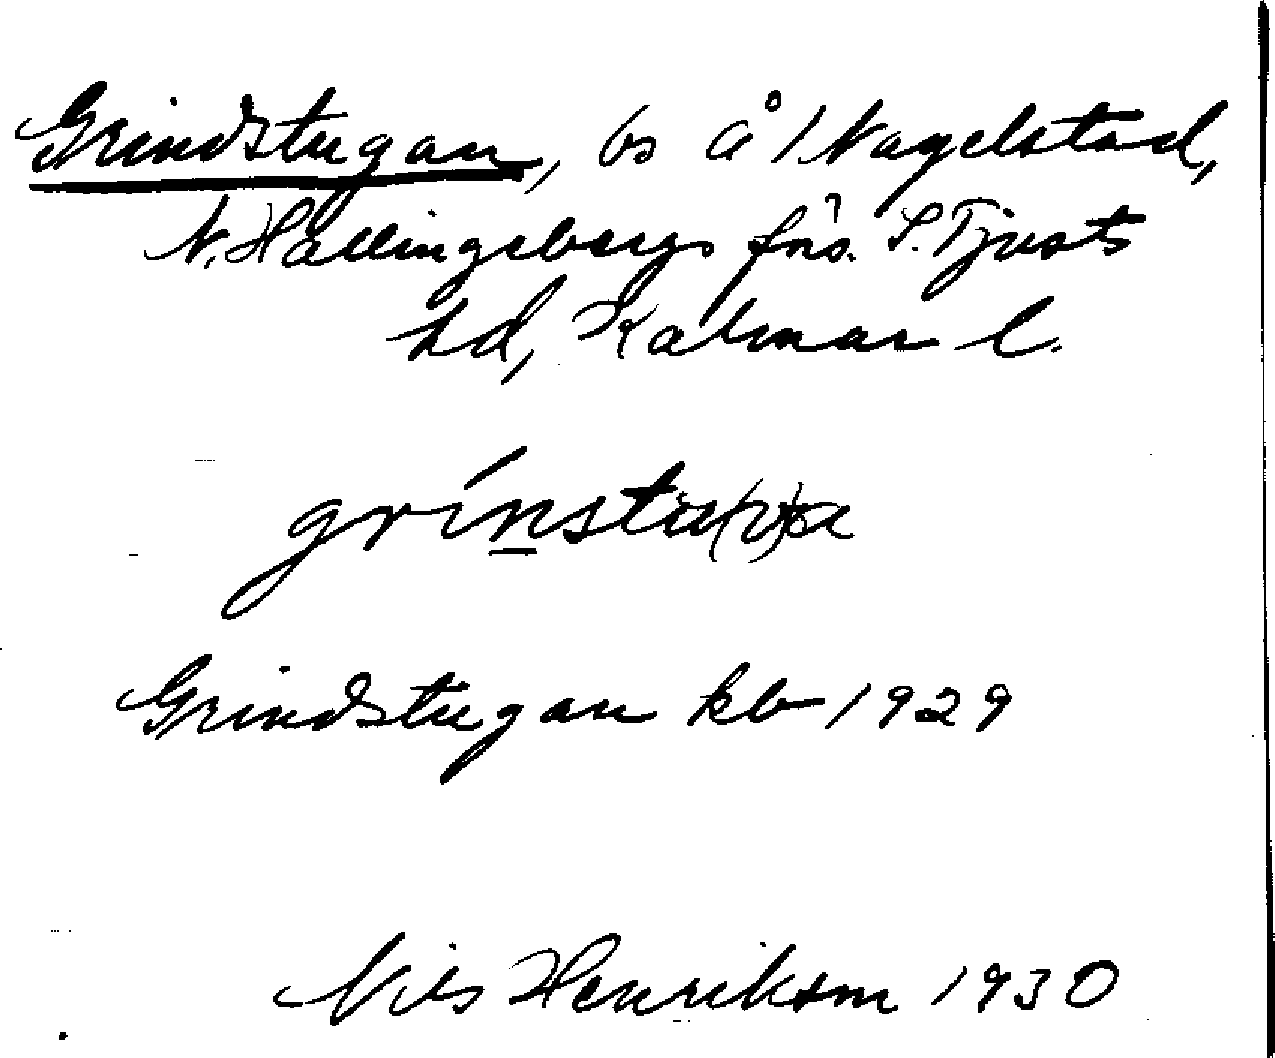 Grindstugan, bs å 1 Nagelstad,
N. Hallingebergs fns. S. Tjusts
hd, Kalmar l.
grínstu(v)a
Grindstugan kb 1929
Nils Henrikson 1930